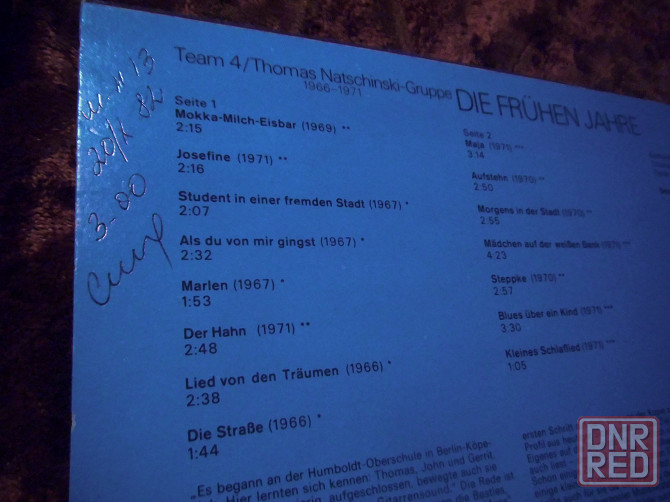 Team 4/Thomas Natschinski-Gruppe DIE FRÜHEN JAHRE
1966–1971
Seite 1
Mokka-Milch-Eisbar (1969) **
2:15
Josefine (1971) **
2:16
Student in einer fremden Stadt (1967) *
2:07
Als du von mir gingst (1967) *
2:32
Marlen (1967) *
1:53
Der Hahn (1971) **
2:48
Lied von den Träumen (1966) *
2:38
Die Straße (1966) *
1:44
Seite 2
Maja (1971) ***
3:14
Aufstehn (1970) **
2:50
Morgens in der Stadt (1970) **
2:55
Mädchen auf der weißen Bank (1971) ***
4:23
Steppke (1970) **
2:57
Blues über ein Kind (1971) ***
3:30
Kleines Schlaflied (1971) ***
1:05
„Es begann an der Humboldt-Oberschule in Berlin-Köpe-
Hier lernten sich kennen: Thomas, John und Gerrit.
aufgeschlossen, bewegte auch sie
Guitarrensound." Die Rede ist
Beatles,
ersten Schritt
Profil aus
Eigenes auf
auch
Schon
20/X 82
3-00
DNR
RED